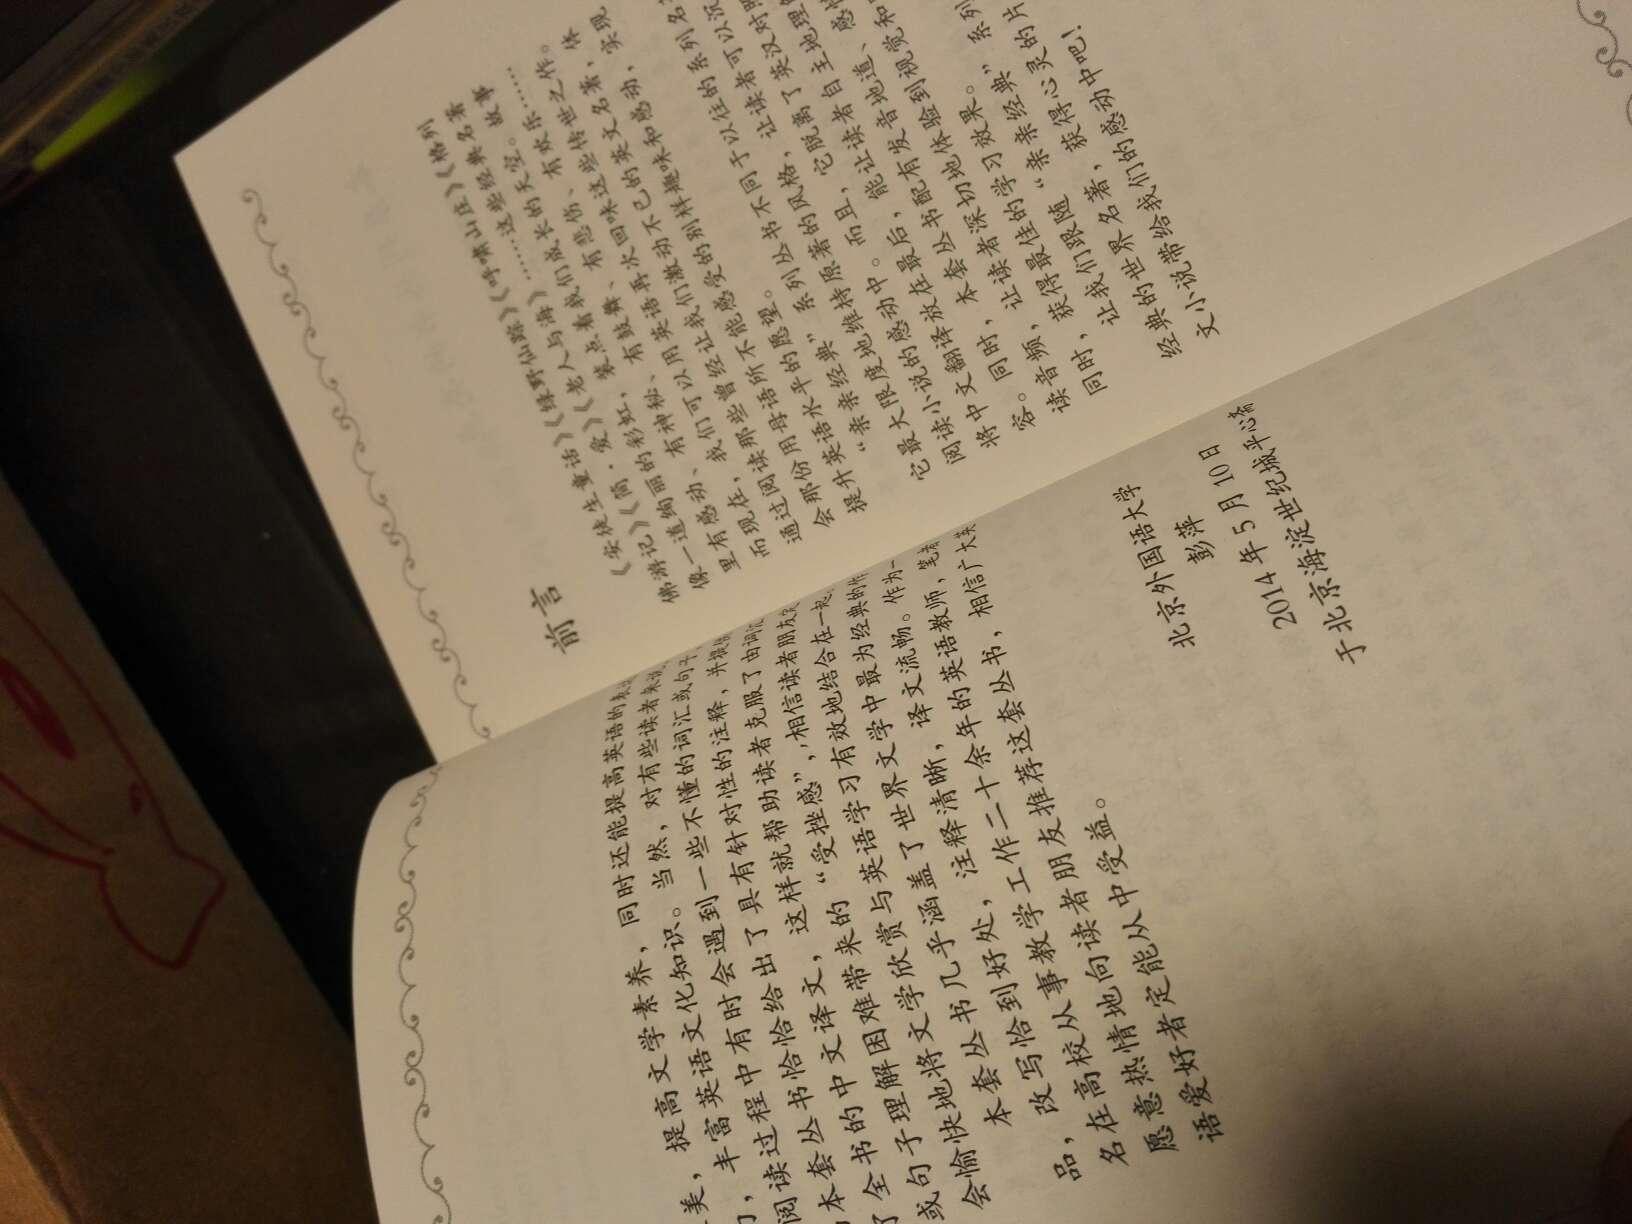 美，提高文学素养，同时还能提高英语的
，丰富英语文化知识。当然，对有些读者来说
阅读过程中有时会遇到一些不懂的词汇或句子
本套丛书恰恰给出了具有针对性的注释，并提供
了全书的中文译文，这样就帮助读者克服了由词汇
或句子理解困难带来的“受挫感”，相信读者朋友
会愉快地将文学欣赏与英语学习有效地结合在一起
本套丛书几乎涵盖了世界文学中最为经典的作
品，改写恰到好处，注释清晰，译文流畅。作为一
名在高校从事教学工作二十余年的英语教师，笔者
愿意热情地向读者朋友推荐这套丛书，相信广大英
语爱好者定能从中受益。
北京外国语大学
彭萍
2014年5月10日
于北京海淀世纪城平心斋
前言
《安徒生童话》《绿野仙踪》《呼啸山庄》《格列
佛游记》《简·爱》《老人与海》……这些经典名著
像一道绚丽的彩虹，装点着我们成长的天空。故事
里有感动、有神秘、有鼓舞、有悲伤、有欢乐……
而现在，我们可以用英语再次回味这些传世之作。
通过阅读那些曾经让我们激动不已的英文名著，体
会那份用母语所不能感受的别样趣味和感动，实现
提升英语水平的愿望。
“亲亲经典”系列丛书不同于以往的系列名
它最大限度地维持原著的风格，让读者可以沉
阅读小说的感动中。它脱离了英汉对照
将中文翻译放在最后，能让读者自主地理解
容。同时，本套丛书配有发音地道、感情
读音频，让读者深切地体验到视觉和
同时，获得最佳的学习效果。系列
让我们跟随“亲亲经典”的片
经典的世界名著，获得心灵的
文小说带给我们的感动中吧！